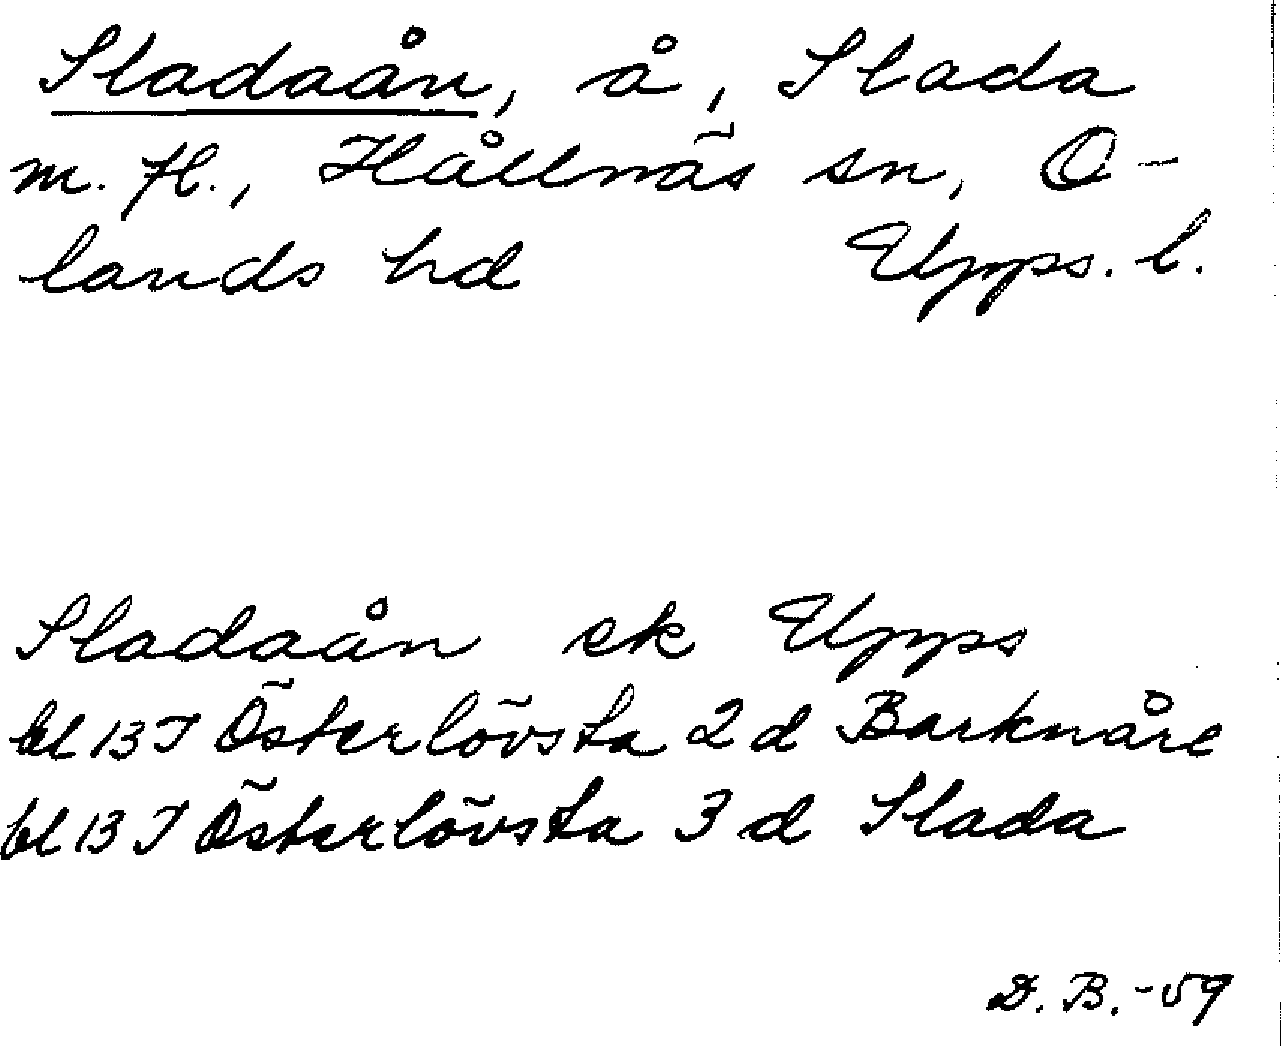 Sladaån, å, Slada
m. fl., Hållnäs sn, O-
lands hd Upps. l.
Sladaån ek Upps
bl 13 I Österlövsta 2 d Barknåre
bl 13 I Österlövsta 3 d Slada
D. B. -59